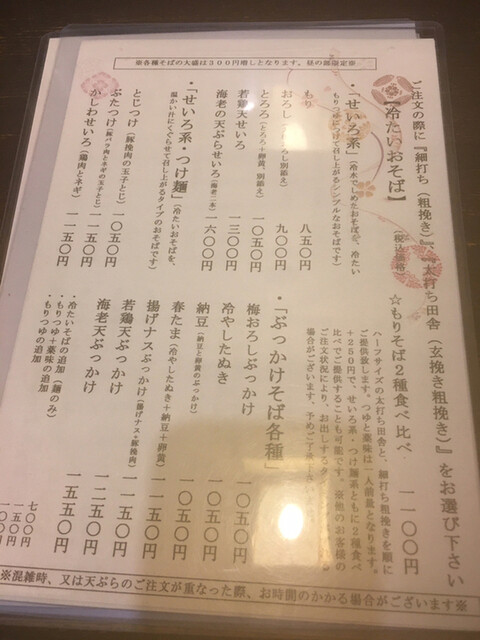 ※各種そばの大盛は３００円増しとなります。昼の部限定※
ご注文の際に『細打ち（粗挽き）』、『太打ち田舎（玄挽き粗挽き）』をお選び下さい
【冷たいおそば】（税込価格）
・「せいろ系」（冷水でしめたおそばを、冷たい
もりつゆにつけて召し上がるシンプルなおそばです）
もり 八五〇円
おろし 九〇〇円
とろろ（とろろ＋卵黄、別添え） 一〇五〇円
若鶏天せいろ 一三〇〇円
海老の天ぷらせいろ（海老二本） 一六〇〇円
・「せいろ系・つけ麺」（冷たいおそばを、
温かい汁にくぐらせて召し上がるタイプのおそばです）
とじつけ（豚挽肉の玉子とじ） 一〇五〇円
ぶたつけ（豚バラ肉とネギの玉子とじ） 一一五〇円
かしわせいろ（鶏肉とネギ） 一一五〇円
☆もりそば２種食べ比べ 一一〇〇円
ハーフサイズの太打ち田舎と、細打ち粗挽きを順に
ご提供致します。つゆと薬味は一人前量となります。
＋２５０円で、せいろ系・つけ麺系ともに２種食べ
比べでご提供することも可能です。※他のお客様の
ご注文状況により、お出しする
場合がございます。予めご了承下さい
・「ぶっかけそば各種」
梅おろしぶっかけ 一〇五〇円
冷やしたぬき 一〇五〇円
納豆（納豆と卵黄のぶっかけ） 一〇五〇円
春たま（冷やしたぬき＋納豆＋卵黄） 一一五〇円
揚げナスぶっかけ（揚げナス＋豚挽肉） 一一五〇円
若鶏天ぷらぶっかけ 一二五〇円
海老天ぶっかけ 一五五〇円
・冷たいそばの追加（麺のみ） 七〇〇円
・もりつゆ＋薬味の追加 一五〇円
・もりつゆの追加 一〇〇円
※混雑時、又は天ぷらのご注文が重なった際、お時間のかかる場合がございます※